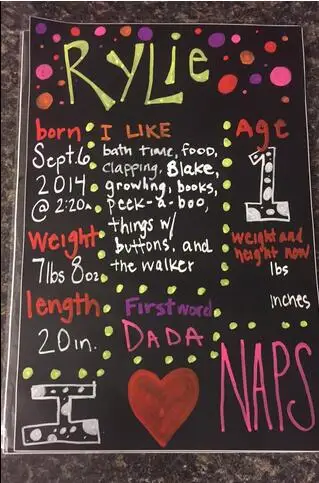 RYLie
born
Sept. 6
2014
@ 2:20a
Weight
7lbs 8oz
length
20in.
I LIKE
bath time, food,
clapping, Blake,
growling, books,
peek-a-boo,
things w/
buttons, and
the walker
First word
DADA
Age
1
weight and
height now
lbs
inches
I
NAPS